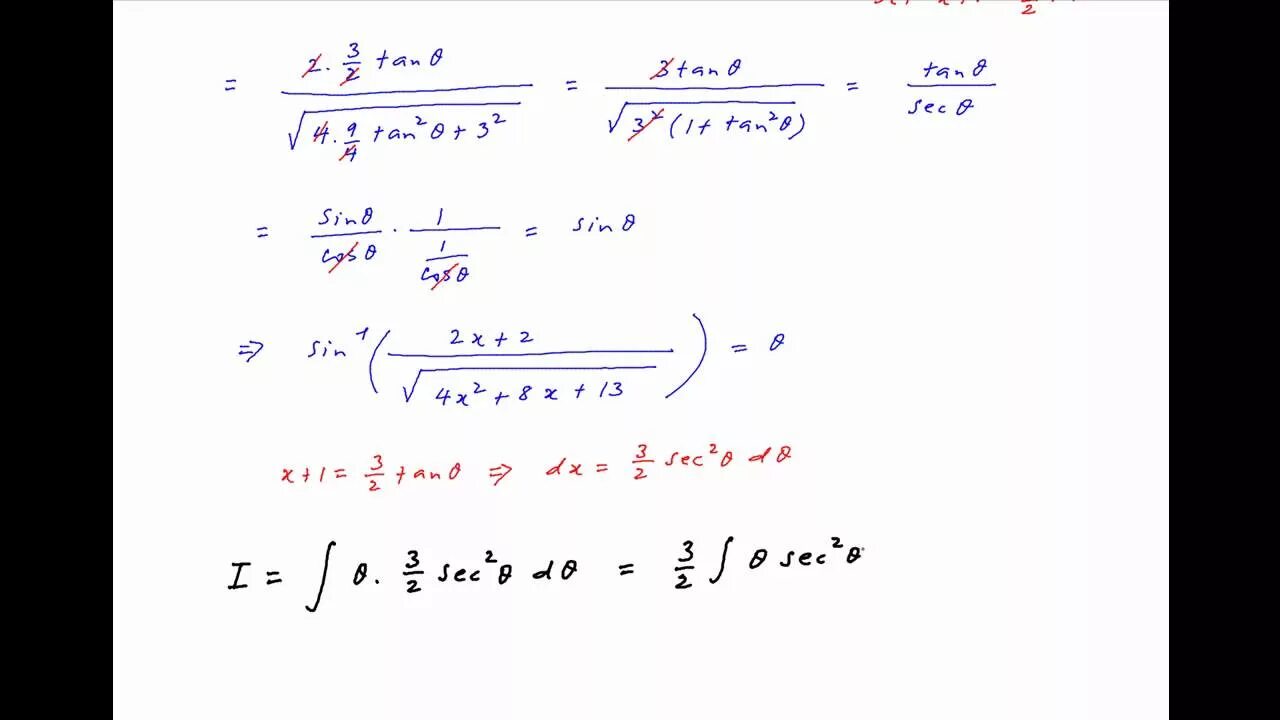 = 2·3/2 tanθ / √(4·9/4 tan²θ + 3²) = 3tanθ / √(3²(1 + tan²θ)) = tanθ / secθ
= sinθ/cosθ · 1/(1/cosθ) = sinθ
⇒ sin⁻¹( (2x+2) / √(4x² + 8x + 13) ) = θ
x+1 = 3/2 tanθ ⇒ dx = 3/2 sec²θ dθ
I = ∫ θ· 3/2 sec²θ dθ = 3/2 ∫ θ sec²θ